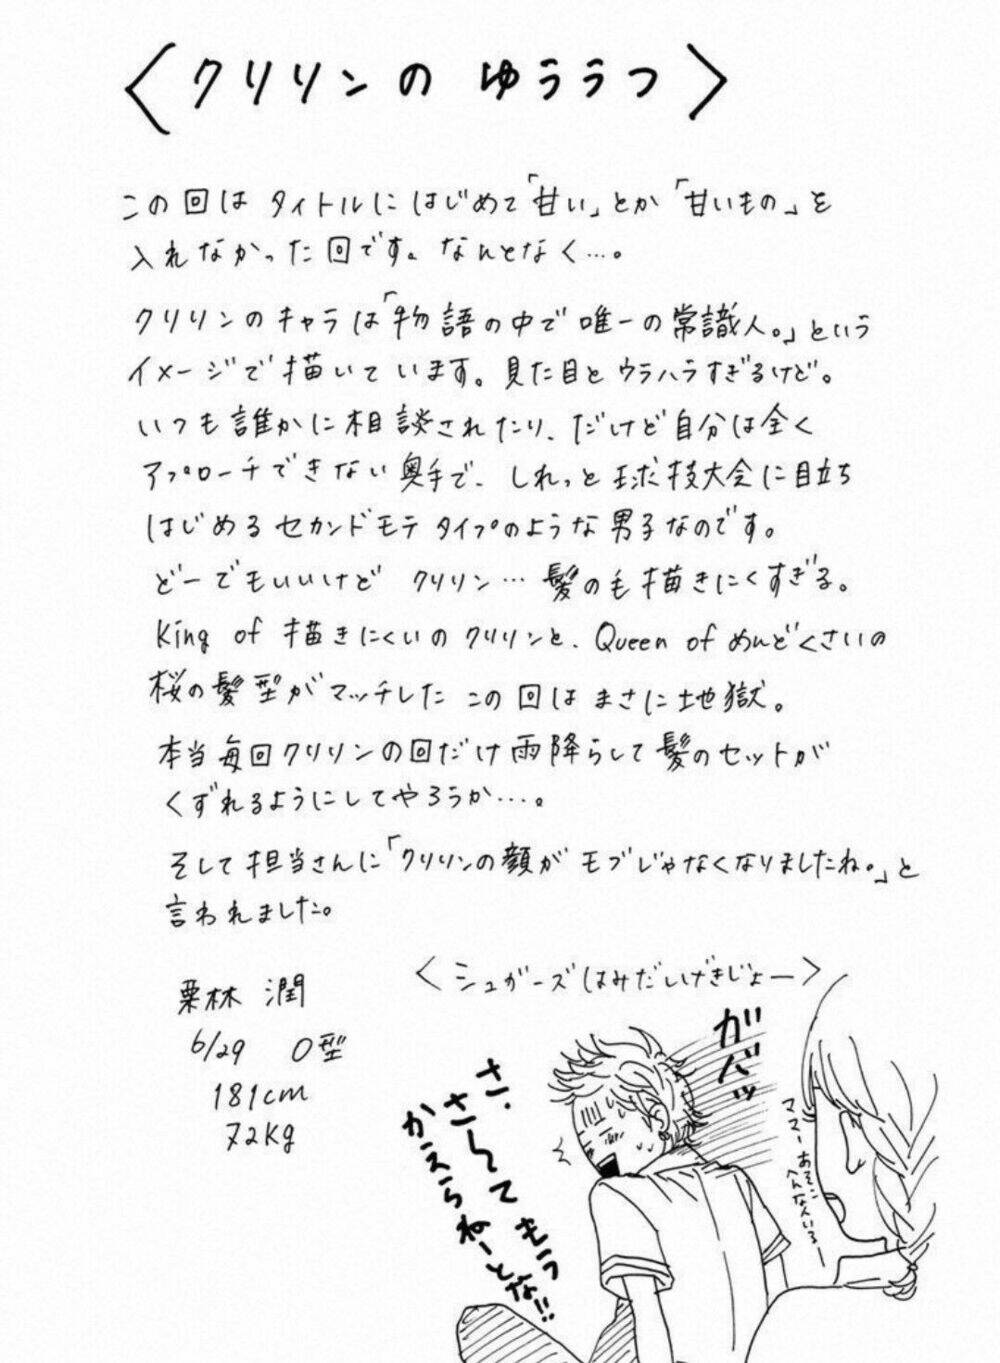 〈クリリンの ゆううつ〉
この回は タイトルに はじめて「甘い」とか「甘いもの」を
入れなかった回です。なんとなく…。
クリリンのキャラは「物語の中で唯一の常識人。」という
イメージで描いています。見た目とウラハラすぎるけど。
いつも誰かに相談されたり、だけど自分は全く
アプローチできない奥手で、しれっと球技大会に目立ち
はじめるセカンドモテタイプのような男子なのです。
どーでもいいけど クリリン…髪の毛描きにくすぎる。
King of 描きにくいのクリリンと、Queen of めんどくさいの
桜の髪型がマッチしたこの回はまさに地獄。
本当毎回クリリンの回だけ雨降らして髪のセットが
くずれるようにしてやろうか…。
そして担当さんに「クリリンの顔がモブじゃなくなりましたね。」と
言われました。
栗林 潤
6/29 O型
181cm
72Kg
〈シュガーズはみだしげきじょー〉
ガバッ
さ、
さーて もう
かえらねーとな!!
ママーあそこ
へんな人いるー